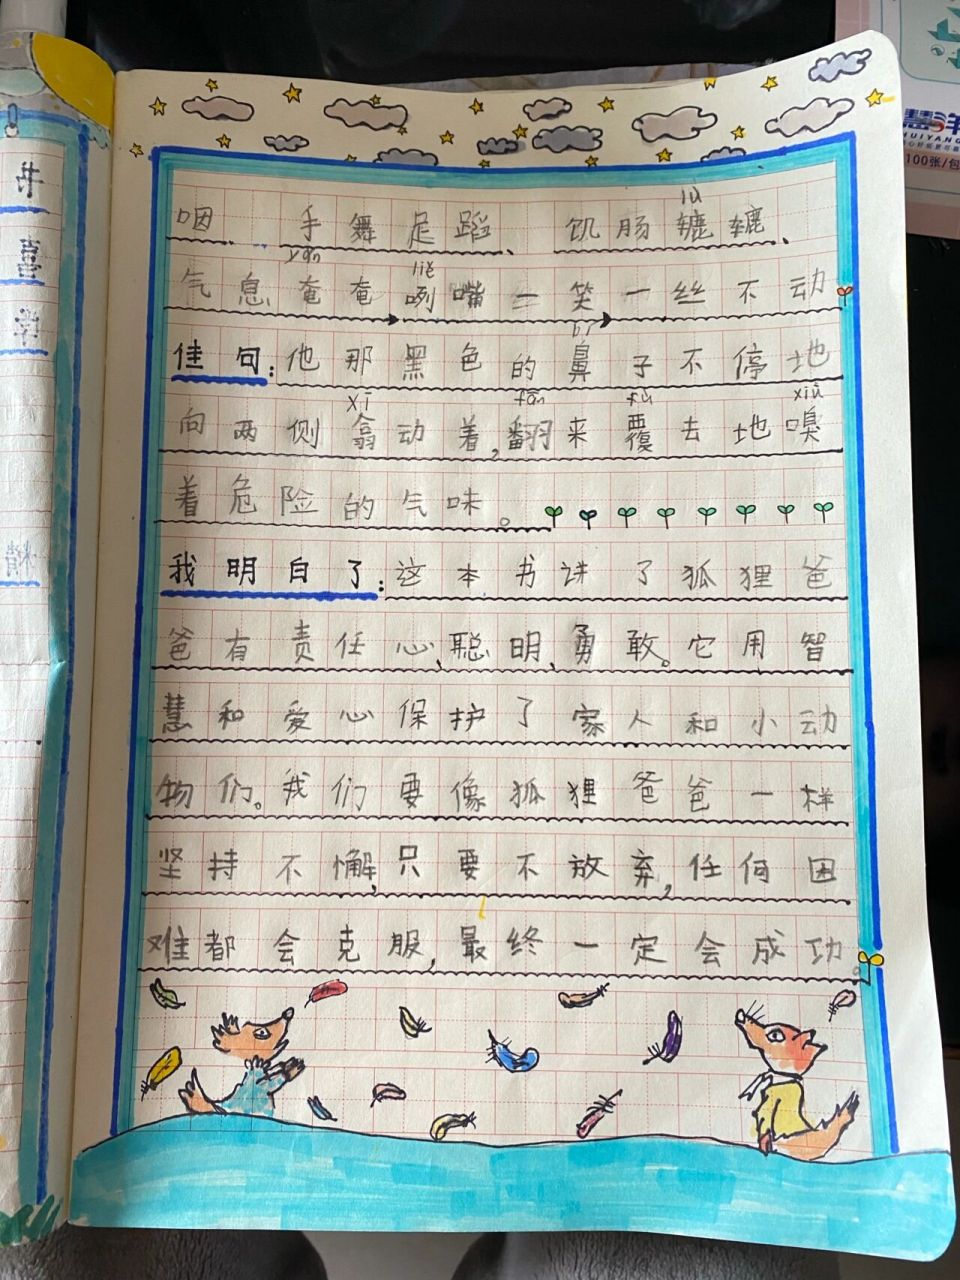 咽、手舞足蹈、饥肠辘辘、
lù
气息奄奄 咧嘴一笑 一丝不动
yǎn liě
佳句:他那黑色的鼻子不停地
bí
向两侧翕动着,翻来覆去地嗅
xī fān fù xiù
着危险的气味。
我明白了:这本书讲了狐狸爸
爸有责任心、聪明、勇敢。它用智
慧和爱心保护了家人和小动
物们。我们要像狐狸爸爸一样
坚持不懈,只要不放弃,任何困
难都会克服,最终一定会成功。
惠洋
HUIYANG
100张/包